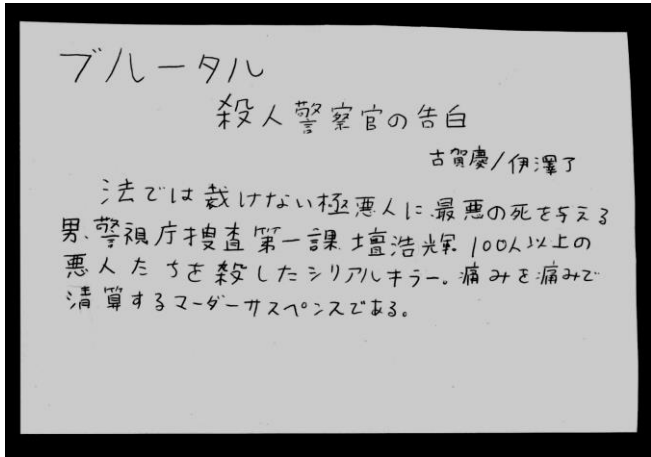 ブルータル
殺人警察官の告白
古賀慶/伊澤了
法では裁けない極悪人に最悪の死を与える
男、警視庁捜査第一課 壇浩輝。100人以上の
悪人たちを殺したシリアルキラー。痛みを痛みで
清算するマーダーサスペンスである。